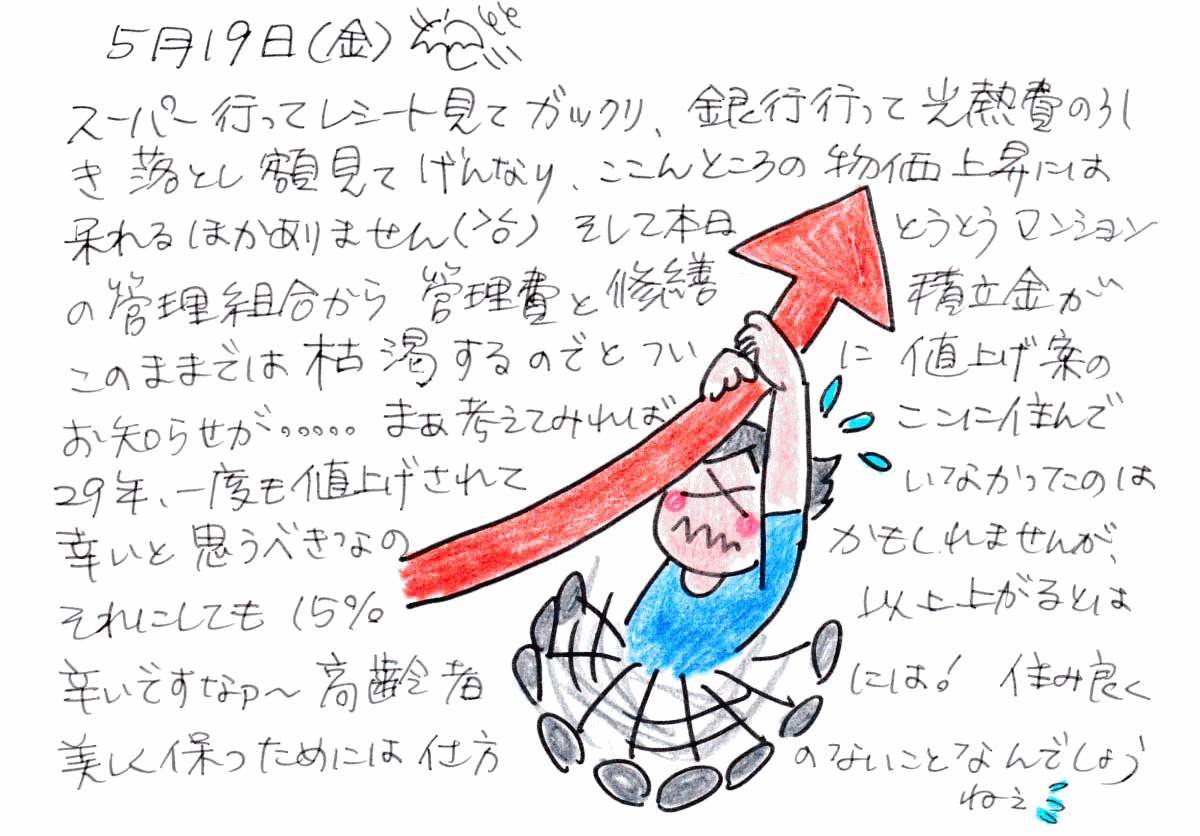 5月19日(金)
スーパー行ってレシート見てガックリ、銀行行って光熱費のひし
き落とし額見てげんなり、ここんところの物価上昇には
呆れるほかありません(>_<) そして本日とうとうマンション
の管理組合から管理費と修繕積立金が
このままでは枯渇するのでとついに値上げ案の
お知らせが。。。。。まぁ考えてみればここに住んで
29年、一度も値上げされていなかったのは
幸いと思うべきなのかもしれませんが、
それにしても15%以上上がるとは
辛いですなァ〜高齢者には! 住み良く
美しく保つためには仕方のないことなんでしょう
ねぇ